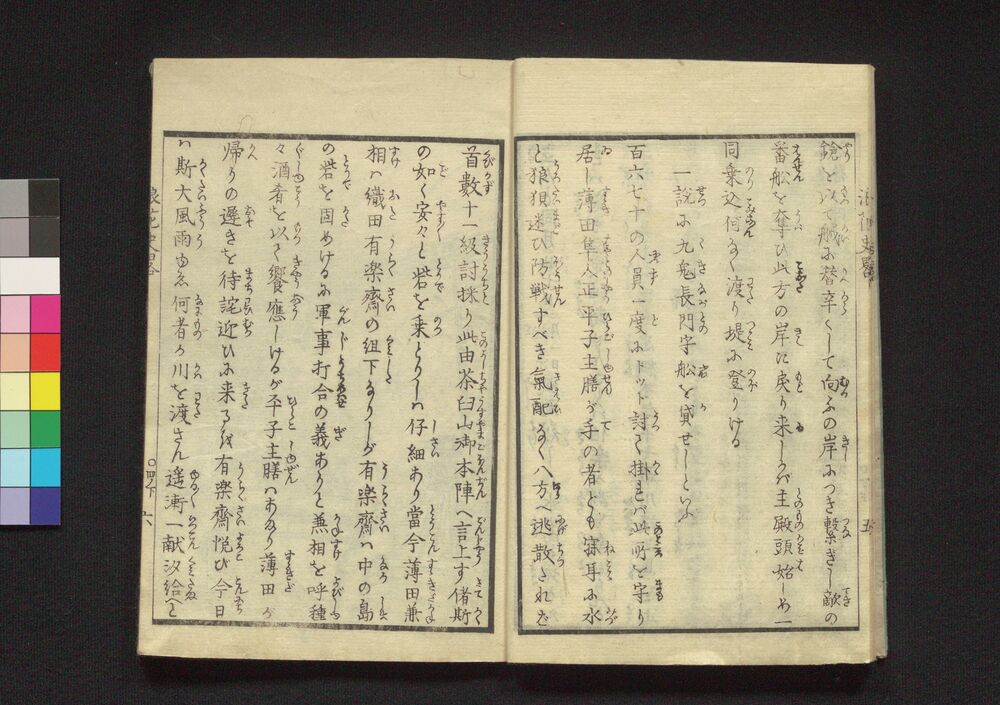 鎗を以て船に替辛くして向ふの岸につき繋ぎし敵の
番船を奪ひ此方の岸に戻り来しかば主殿頭始しめ一
同乗込何なく渡り堤に登りける
一説に九鬼長門守船を貸せしといふ
百六七十の人員一度にドット討て掛れバ此所を守り
居し薄田隼人正平子主膳が手の者ども寐耳に水
と狼狽迷ひ防戦すべき氣配なく八方へ逃散されば
首數十一級討採り此由茶臼山御本陣へ言上す偖斯
の如く安々と砦を乗とりしハ仔細あり當今薄田兼
相ハ織田有楽齋の組下なりしが有楽齋ハ中の島
の砦を固めけるに軍事打合の義ありと兼相を呼種
々酒肴を以て饗應しけるが平子主膳ハあまり薄田が
帰りの遅きを待詫迎ひに来るを有楽齋悦び今日
ハ斯大風雨ゆゑ何者か川を渡さん遥漸一献汐給へと
浪花史畧
〇四ノ下 六